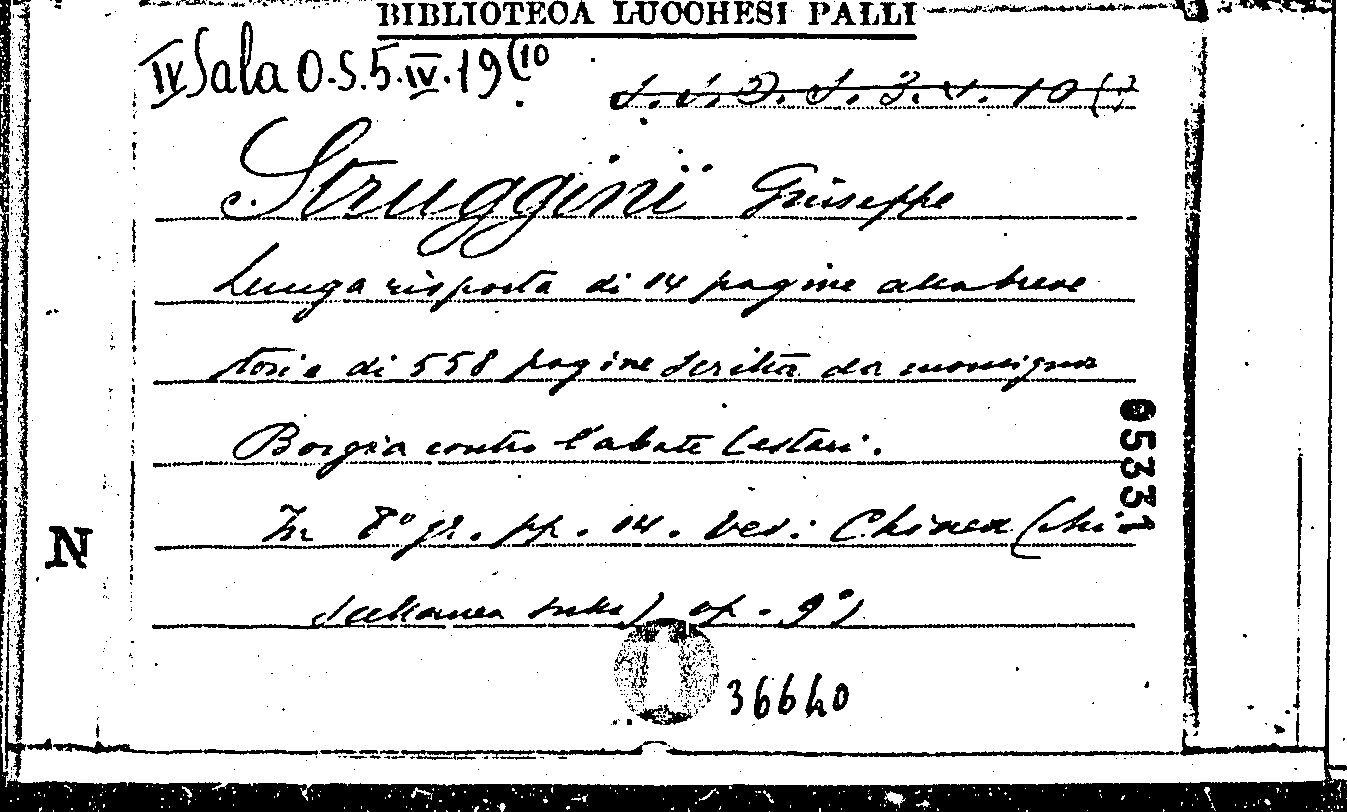 BIBLIOTECA LUCCHESI PALLI
IV Sala O.S.5.IV.19(10
Struggini Giuseppe
Lunga risposta di 14 pagine alla breve
storia di 558 pagine scritta da monsignor
Borgia contro l'abate Cestari.
In 8° gr. pp. 14. Ved: Chinea (Mi
scellanea sulla) op. 9ª)
05331
N
36640